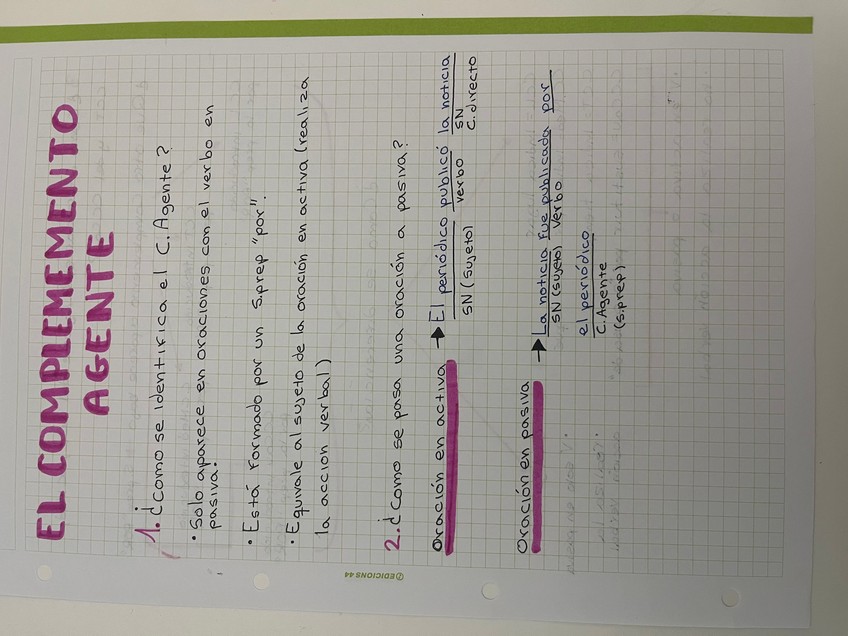 EL COMPLEMEMENTO
AGENTE
1. ¿Como se identifica el C. Agente?
· Solo aparece en oraciones con el verbo en
pasiva.
· Está formado por un s.prep "por".
· Equivale al sujeto de la oración en activa (realiza
la accion verbal)
2. ¿Como se pasa una oración a pasiva?
Oración en activa → El periódico publicó la noticia
SN (sujeto) verbo SN
C. directo
Oración en pasiva → La noticia fue publicada por
SN (sujeto) Verbo
el periódico
C. Agente
(s.prep)
EDICIONS 44